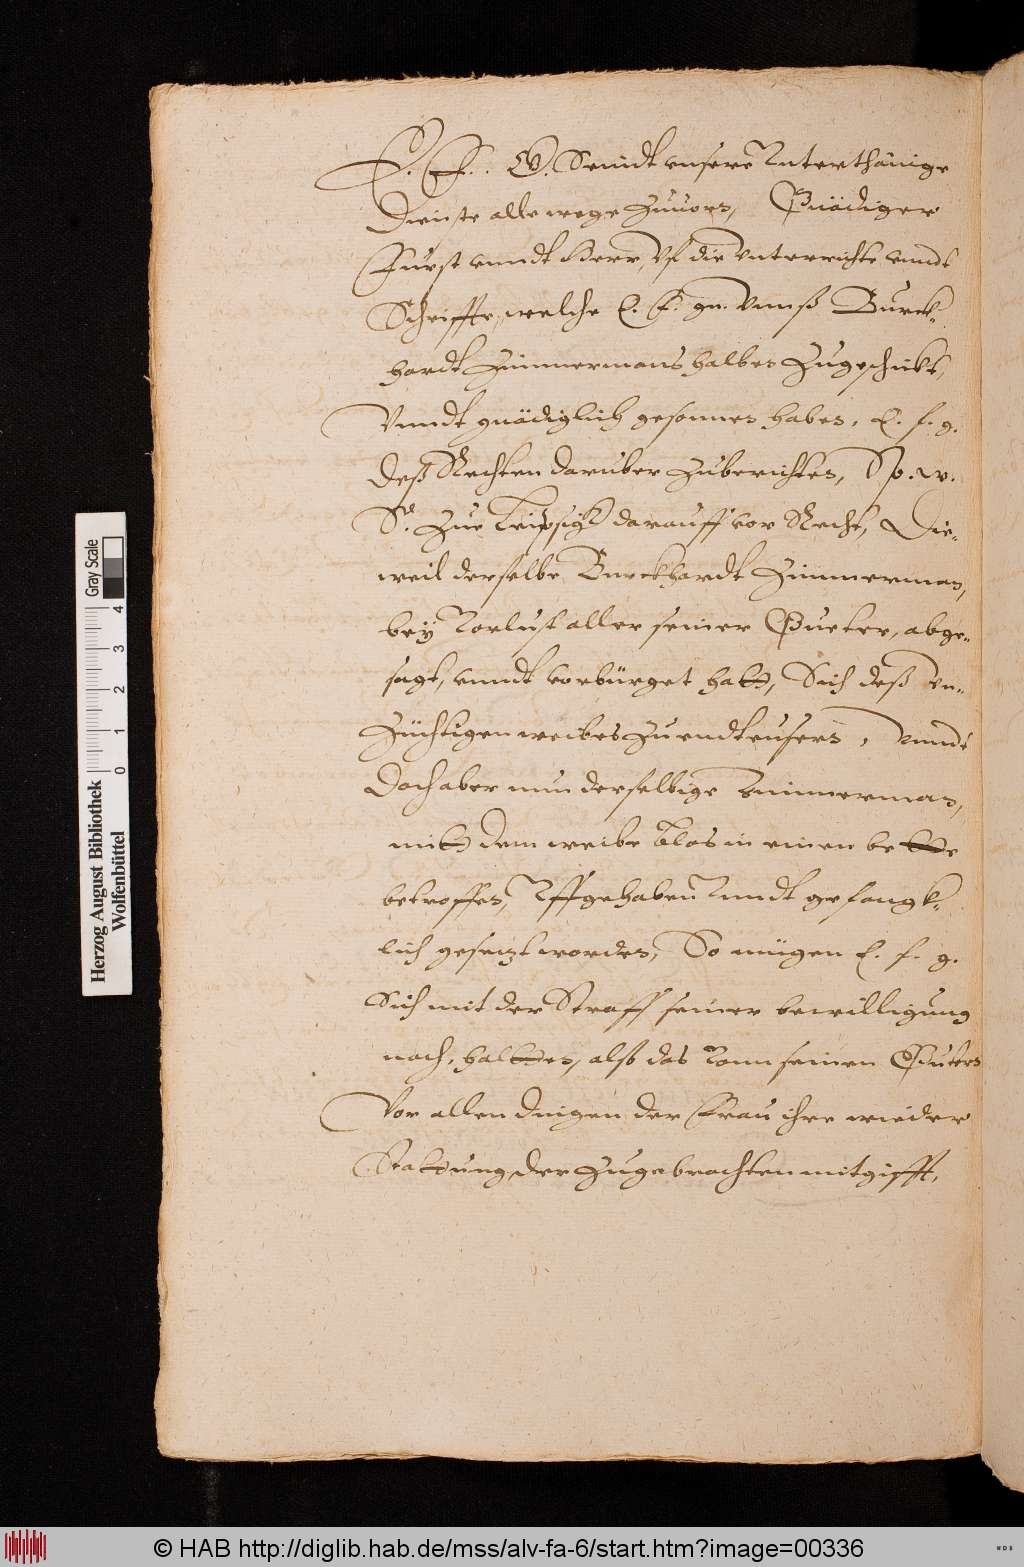 E. F. G. Seindt vnsere Vnterthänige
Dienste alle wege Zuuorn, Gnädiger
Fürst vnndt Herr, Vf die Vnterrichte vnndt
Schriffte, welche E. F. gn. Vnnß Burck-
hardt Zimmermans halben Zugeschickt,
Vnndt gnädiglich gesonnen haben, E. f. g.
deß Rechten daruber Zuberichten, Sp. w.
S. Zue Leipsigk darauff vor Recht, Die-
weil derselbe Burckhardt Zimmerman,
bey Vorlust aller seiner Gueter, abge-
sagt, vnndt vorbürget hatt, Sich deß vn-
Züchtigen weibes Zu endteusern, vnndt
Doch aber nun derselbige Zimmerman,
mitt dem weibe blos in einen bette
betroffen, Vffgehaben Vnndt gefangk-
lich gesetzt worden, So mügen E. f. g.
Sich mit der Straff seiner bewilligung
nach, haltten, alß das Vonn seinen Gutern
Vor allen dingen der Frau ihre wieder
Stattung der Zugebrachten mitgifft,
Herzog August Bibliothek
Wolfenbüttel
Gray Scale
0 1 2 3 4
© HAB http://diglib.hab.de/mss/alv-fa-6/start.htm?image=00336